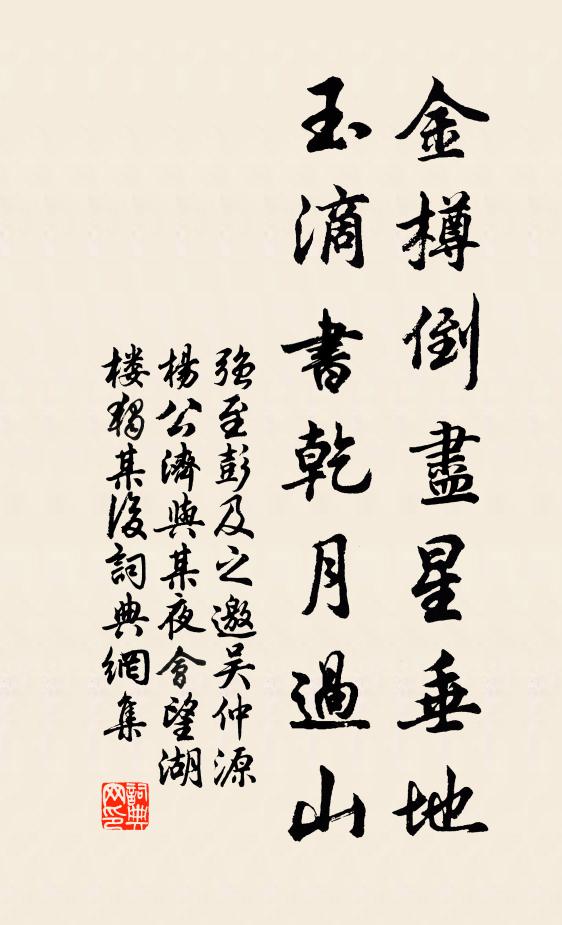 金樽倒盡星垂地
玉滴書乾月過山
強至彭及之邀吳仲源
楊公濟與某夜會望湖
楼獨某後詞典網集
詞典
网印